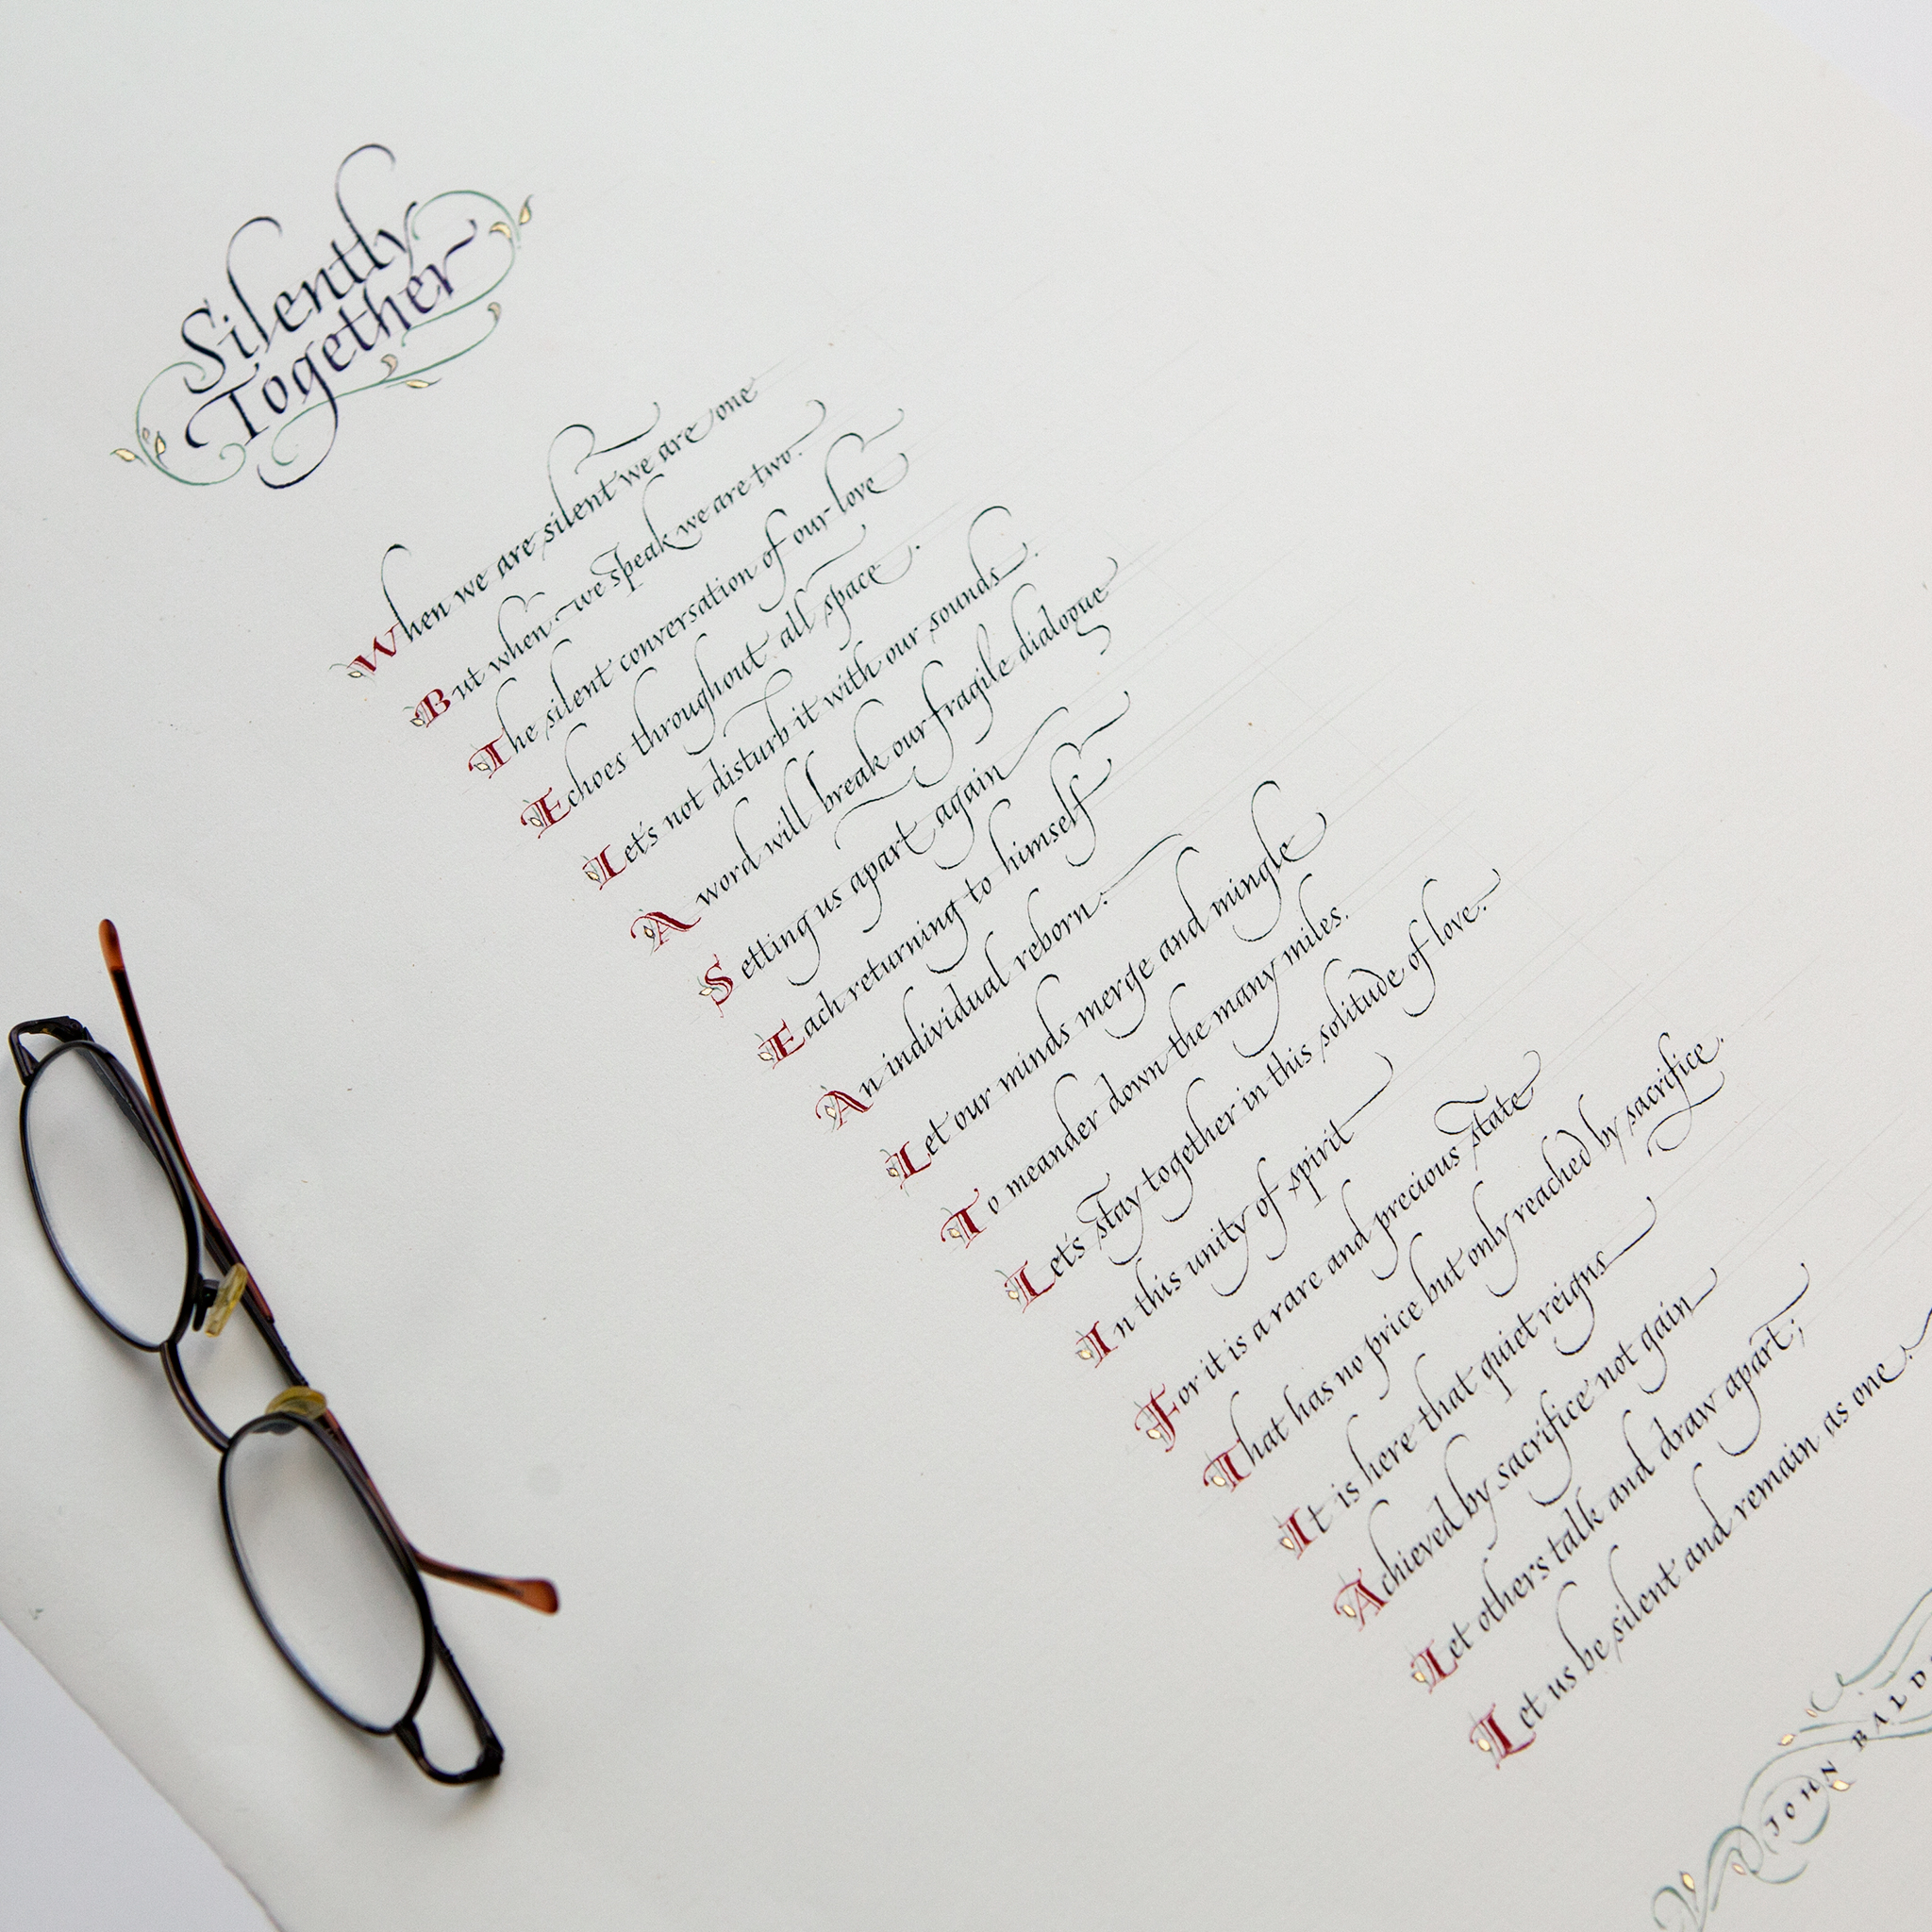 Silently
Together
When we are silent we are one
But when we speak we are two.
The silent conversation of our love
Echoes throughout all space.
Let's not disturb it with our sounds.
A word will break our fragile dialogue
Setting us apart again
Each returning to himself
An individual reborn.
Let our minds merge and mingle
To meander down the many miles.
Let's stay together in this solitude of love.
In this unity of spirit
For it is a rare and precious state
That has no price but only reached by sacrifice.
It is here that quiet reigns
Achieved by sacrifice not gain
Let others talk and draw apart;
Let us be silent and remain as one.
JOHN